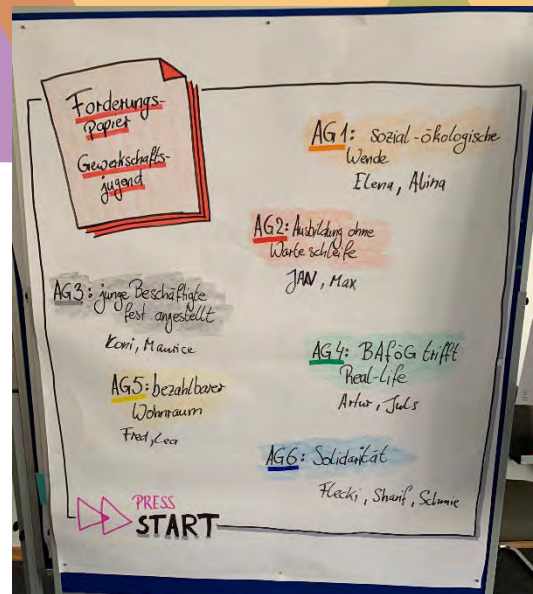 Forderungs-
papier
Gewerkschafts-
jugend
AG1: Sozial-ökologische
Wende
Elena, Alina
AG2: Ausbildung ohne
Warteschleife
JAN, Max
AG3: junge Beschäftigte
fest angestellt
Maurice
AG4: BAföG trifft
Real-Life
Artur, Juls
AG5: bezahlbarer
Wohnraum
Fred, Lea
AG6: Solidarität
Flecki, Sharif,
PRESS
START